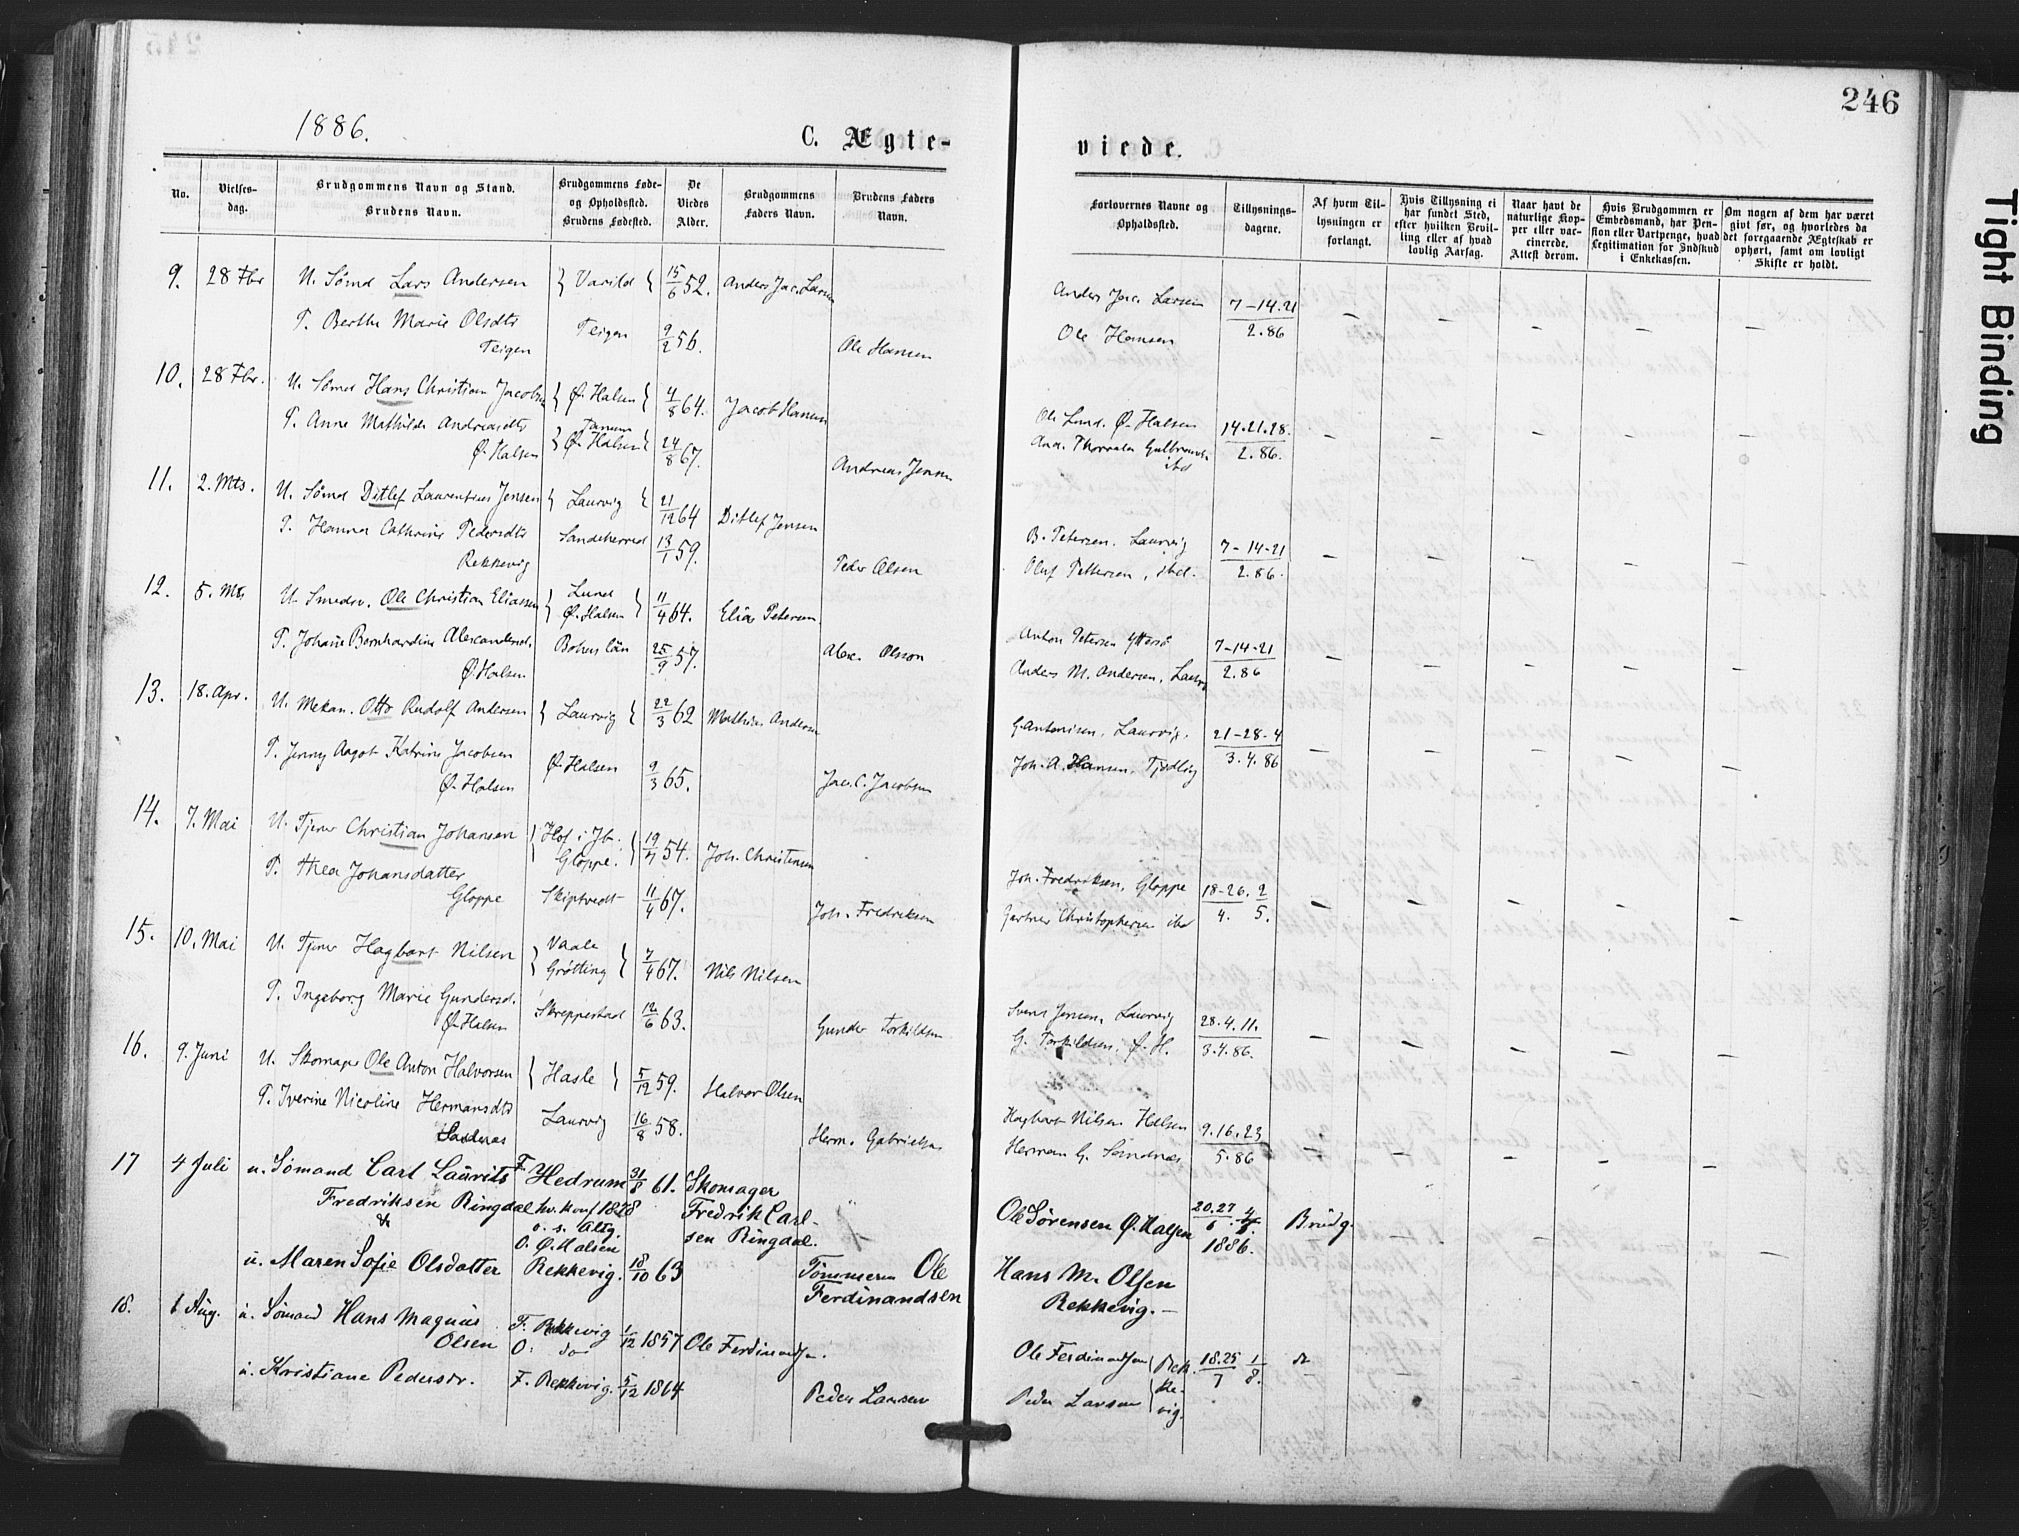 246
1886.
C. Ægte-
viede.
No.
Vielses-
dag.
Brudgommens Navn og Stand.
Brudens Navn.
Brudgommens Føde-
og Opholdssted.
Brudens Fødested.
De
Viedes
Alder.
Brudgommens
Faders Navn.
Brudens Faders
Navn.
Forlovernes Navne og
Opholdssted.
Tillysnings-
dagene.
Af hvem Til-
lysningen er
forlangt.
Hvis Tillysning ei
har fundet Sted,
efter hvilken Bevil-
ling eller af hvad
lovlig Aarsag.
Naar havt de
naturlige Kop-
per eller vac-
cinerede.
Attest derom.
Hvis Brudgommen er
Embedsmand, har Pen-
sion eller Vartpenge, hvad
Legitimation for Indskud
i Enkekassen.
Om nogen af dem har været
gift før, og hvorledes da
det foregaaende Ægteskab er
ophørt, samt om lovligt
Skifte er holdt.
9. 28 Fbr U. Sømd Lars Andersen } Varild { 15/6 52. Anders Jac. Larsen Anders Jac. Larsen 7-14.21
P. Berthe Marie Olsdtr Teigen 9/2 56. Ole Hansen Ole Hansen 2.86
Teigen
10. 28 Fbr. U. Sømd Hans Christian Jacobsen } Ø. Halsen } 4/8 64. Jacob Hansen Ole Lund. Ø. Halsen 14.21.28.
P. Anne Mathilde Andreasdtr } Tanum
Ø. Halsen { 24/8 67. Andreas Jensen And. Thorvald Gulbrands. ibd 2.86.
Ø. Halsen
11. 2. Mts. U. Sømd Ditlef Laurentius Jensen } Laurvig { 21/12 64 Ditlef Jensen B. Petersen. Laurvig 7-14-21
P. Hanna Cathrine Pedersdtr Sandeherred 13/1 59. Peder Olsen Oluf Pettersen, ibd. 2.86.
Rekkevig
12. 5. Mts U. Smedsv. Ole Christian Eliassen } Lund
Ø. Halsen } 11/4 64. Elias Petersen Anton Petersen Yttersø 7-14-21
P. Johane Bernhardine Alexandersd. Bohus län 25/9 57. Alex. Olsson Anders M. Andersen, Laurv. 2.86
Ø. Halsen
13. 18. Apr. U. Mekan. Otto Rudolf Andersen } Laurvig { 22/3 62 Mathias Andersen G. Antonisen. Laurvig. 21-28-4
P. Jenny Aagot Katrine Jacobsen Ø. Halsen 9/3 65. Jac. C. Jacobsen Joh. A. Hansen. Tjødling 3.4.86
Ø. Halsen
14. 7. Mai U. Tjener Christian Johansen } Hof i Jb.
Gloppe. } 19/7 54. Joh. Christensen Joh. Fredriksen, Gloppe 18-26. 2
P. Thea Johansdatter Skiptvedt 11/4 67. Joh. Fredriksen Gartner Christophersen ibd 4. 5.
Gloppe
15. 10. Mai U. Tjener Hagbart Nilsen } Vaale
Grøtting } 7/4 67. Nils Nilsen Svend Jensen, Laurvig 28.4.11.
P. Ingeborg Marie Gundersd. Skreppestad 12/6 63. Gunder Torkildsen G. Torkildsen, Ø. H. 3.4.86.
Ø. Halsen
16. 9. Juni U. Skomager Ole Anton Halvorsen } Hasle } 5/12 59. Halvor Olsen Hagbart Nilsen Halsen 9.16.23
P. Iverine Nicoline Hermansdtr Laurvig 16/8 58. Herm. Gabrielsen Herman G. Sandnæs 5.86
Sandnæs
17 4 Juli u. Sømand Carl Laurits F. Hedrum 31/8 61. Skomager
Fredriksen Ringdal hv. konf 1878 Fredrik Carl- Ole Sørensen Ø. Halsen 20.27/6. 4/7. Brudg.
& o. s. Altg. sen Ringdal. 1886.
O. Ø. Halsen
u. Maren Sofie Olsdatter Rekkevig. 18/10 63 Tømmerm Ole Hans M. Olsen
Ferdinandsen Rekkevig.
18. 1 Aug. u. Sømand Hans Magnus F. Rekkevig 1/12 1857 Ole Ferdinandsen. Ole Ferdinandsen Rek- 18.25/7 1/8. do
Olsen O: do
u. Kristiane Pedersdr. F. Rekkevig. 5/12 1864 Peder Larsen Peder Larsen ke-
vig.
Tight Binding